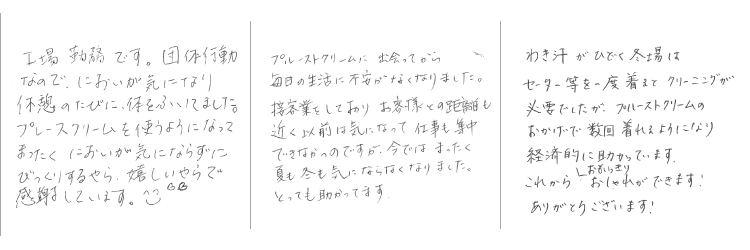 工場勤務です。団体行動
なので、においが気になり
休憩のたびに、体をふいてました。
プルーストクリームを使うようになって
まったくにおいが気にならずに
びっくりするやら、嬉しいやらで
感謝しています。
プルーストクリームに出会ってから
毎日の生活に不安がなくなりました。
接客業をしておりお客様との距離も
近く以前は気になって仕事も集中
できなかったのですが、今ではまったく
夏も冬も気にならなくなりました。
とっても助かってます。
わき汗がひどく冬場は
セーター等を一度着るとクリーニングが
必要でしたが、プルーストクリームの
おかげで数回着れるようになり
経済的に助かっています。
これからおもいっきりおしゃれができます!
ありがとうございます!